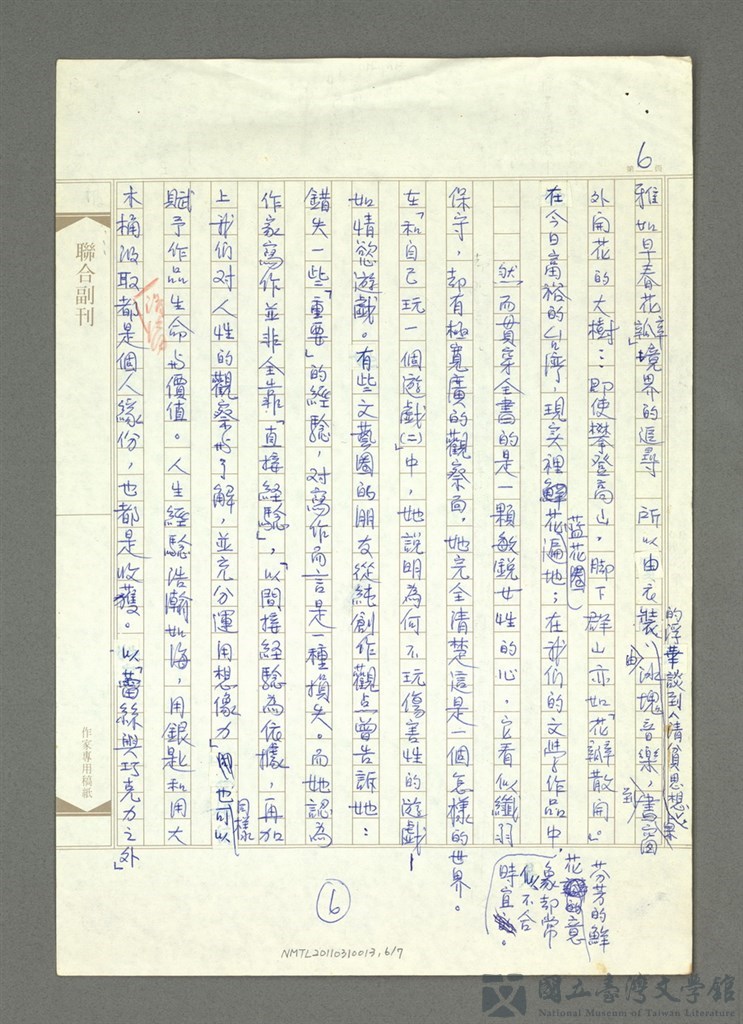 6
雅如早春花瓣」境界的追尋 所以由衣裝的浮華談到「清貧思想」,由冰塊音樂,到書窗
外開花的大樹…即使攀登高山,腳下群山亦如「花瓣散開。」
在今日富裕的台灣,現实裡鮮花遍地;在我們的文學作品中,芬芳的鮮花的意象却常似不合時宜。
藍花圈
然而貫穿全書的是一顆敏銳女性的心,它看似纖弱
保守,却有極寬廣的觀察面,她完全清楚這是一個怎樣的世界。
在「和自己玩一個遊戲(二)」中,她說明為何不玩傷害性的遊戲—
如情慾遊戲。有些文藝圈的朋友從純創作觀点曾告訴她:
錯失一些「重要」的經驗,對寫作而言是一種損失。而她認為
作家寫作並非全靠「直接經驗」,「以間接經驗為依據,再加
上我們對人性的觀察与了解,並充分運用想像力」也可以同樣
賦予作品生命与價值。人生經驗浩瀚如海,用銀匙和用大
木桶汲取都是個人緣份,也都是收獲。以「蕾絲與巧克力之外」
聯合副刊
作家專用稿紙
6
NMTL20110310013, 6/7
國立臺灣文學館
National Museum of Taiwan Literature